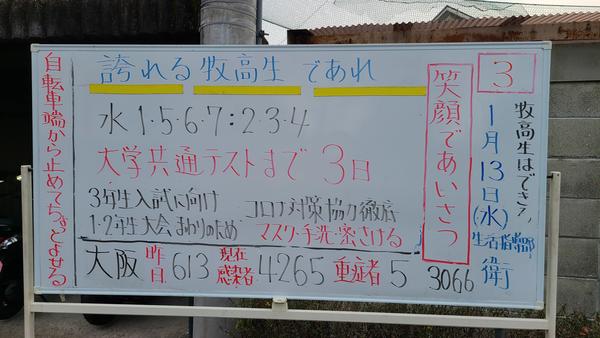 3
牧高生はできる!
1月13日(水)
生活指導部 衛
笑顔であいさつ
誇れる牧高生であれ
水 1・5・6・7:2・3・4
大学共通テストまで 3日
3年生入試に向け
1・2年生大会まわりのため
コロナ対策協力徹底
マスク・手洗・密さける
大阪 昨日 613 現在感染者 4265 重症者 5
3066
自転車端から止めてちょとよせる